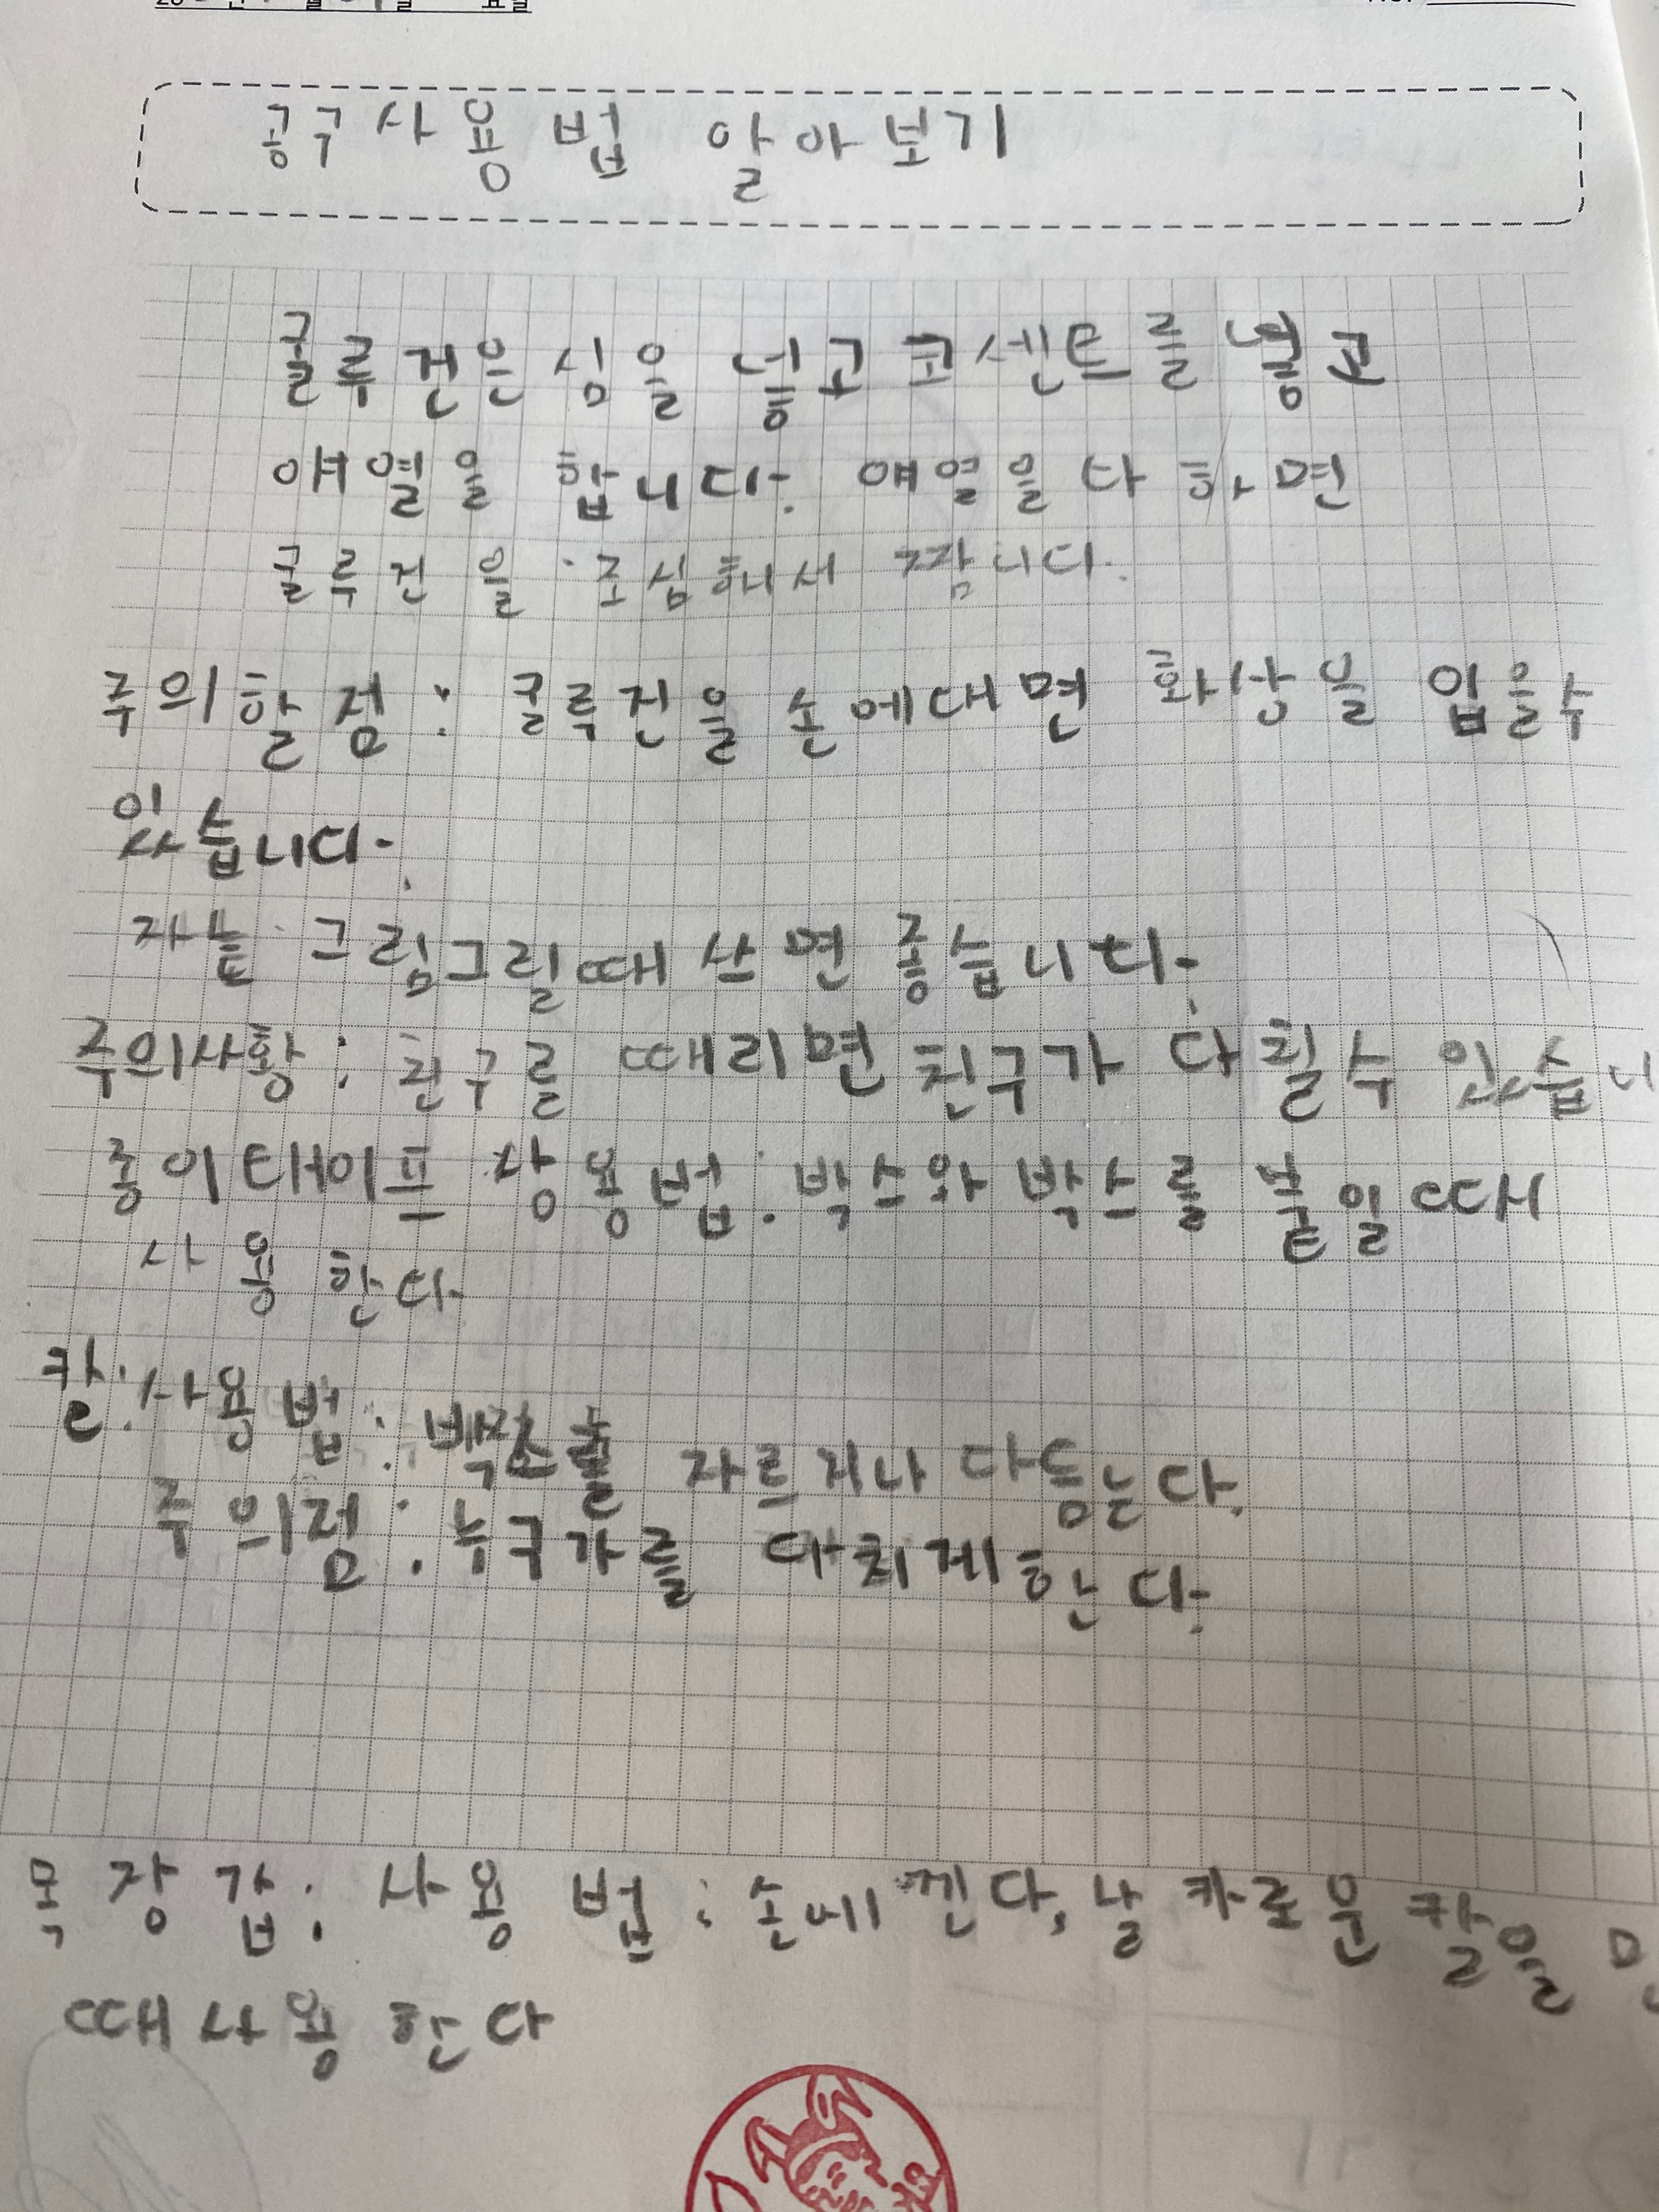 공구사용법 알아보기
글루건은 심을 넣고 코센트를 넣고
얘열을 합니다. 얘열을 다 하면
글루건을 조심해서 짭니다.
주의할 점: 글루건을 손에대면 화상을 입을수
있습니다.
자는 그림그릴때 쓰면 좋습니다.
주의사황: 친구를 때리면 친구가 다칠수 있습니
종이테이프 상용법: 박스와 박스를 붙일때
사용한다.
칼: 사용법: 박스를 자르거나 다듬는다.
주의점: 누구가를 다치게한다.
목장갑: 사용법: 손에 낀다, 날카로운 칼을
때 사용한다